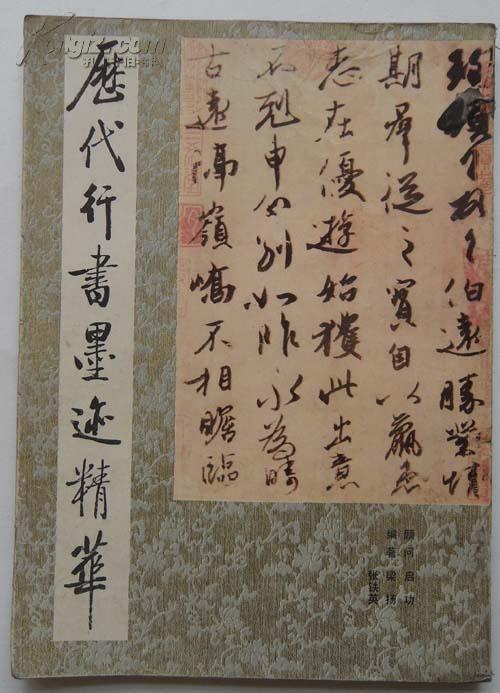 歷代行書墨迹精華
珣頓首頓首伯遠勝業情
期羣從之寳自以羸患
志在優遊始獲此出意
不剋申分别如昨永為疇
古遠隔嶺嶠不相瞻臨
顾问 启功
编著 梁扬
张铁英